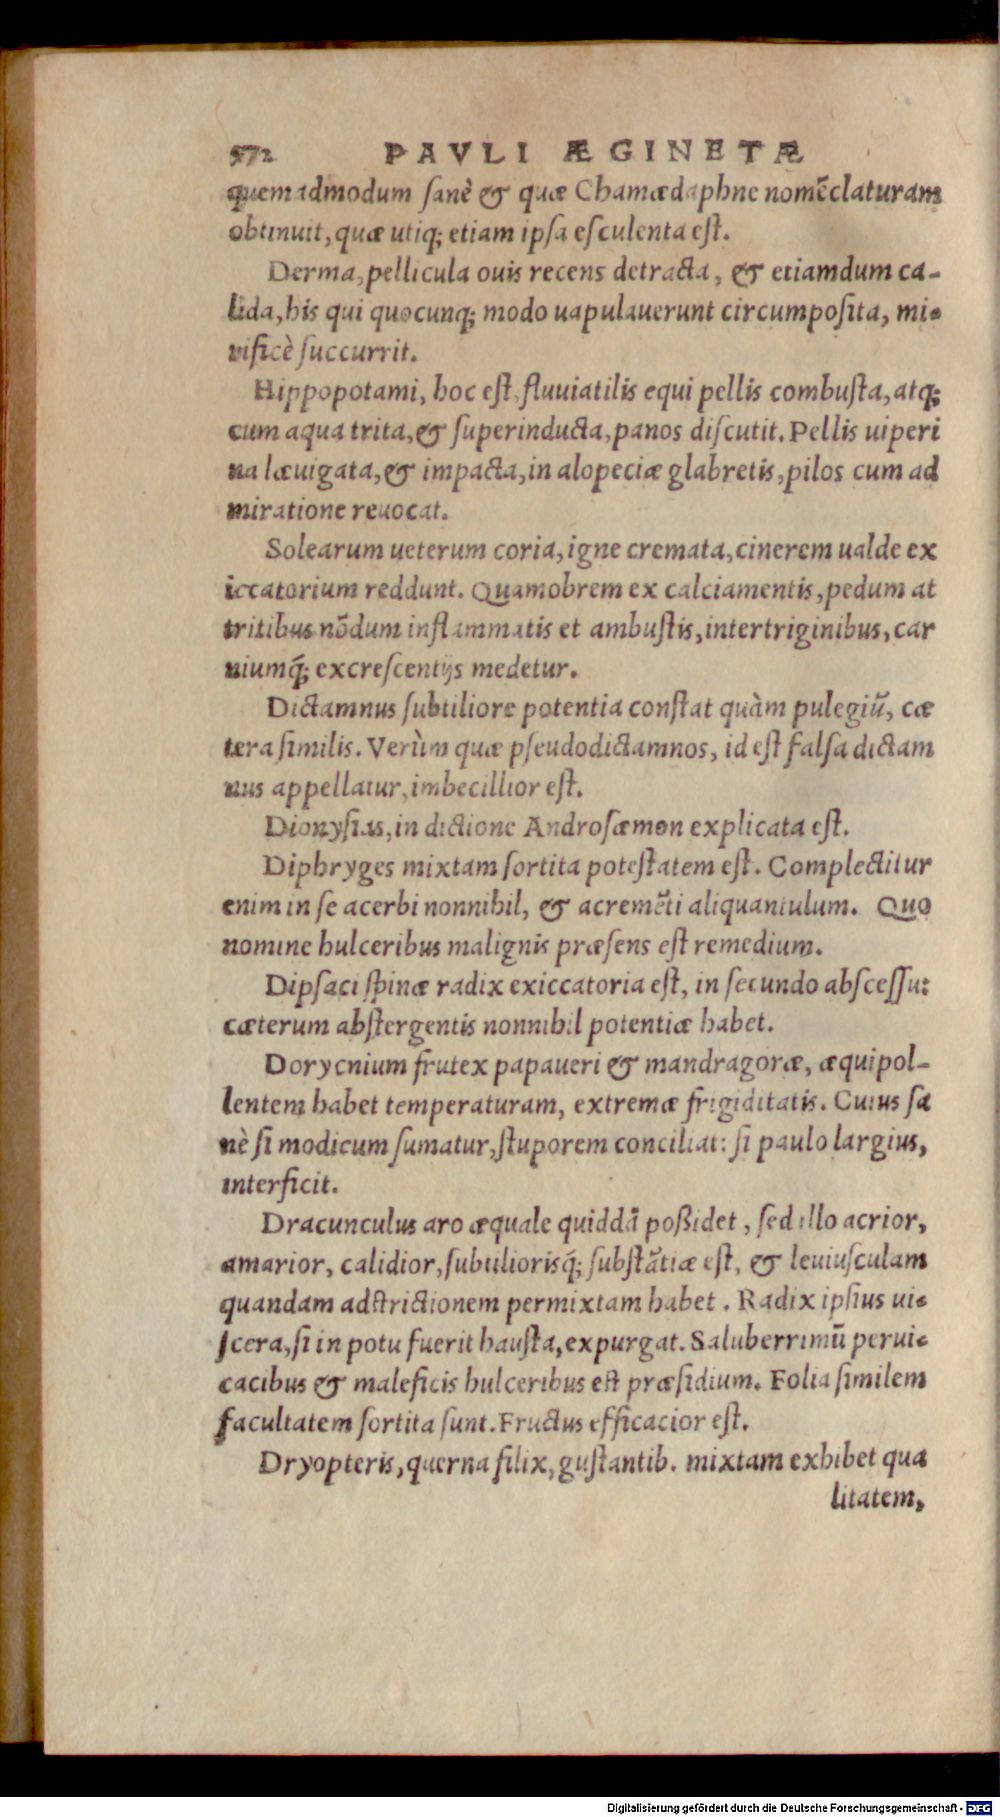 572 PAVLI ÆGINETÆ
quemadmodum sanè & quæ Chamædaphne nomẽclaturam
obtinuit, quæ utiq; etiam ipsa esculenta est.
Derma, pellicula ouis recens detracta, & etiamdum ca-
lida, his qui quocunq; modo uapulauerunt circumposita, mi-
rificè succurrit.
Hippopotami, hoc est, fluuiatilis equi pellis combusta, atq;
cum aqua trita, & superinducta, panos discutit. Pellis uiperi
na læuigata, & impacta, in alopeciæ glabretis, pilos cum ad
miratione reuocat.
Solearum ueterum coria, igne cremata, cinerem ualde ex
iccatorium reddunt. Quamobrem ex calciamentis, pedum at
tritibus nõdum inflammatis et ambustis, intertriginibus, car
niumq́; excrescentijs medetur.
Dictamnus subtiliore potentia constat quàm pulegiũ, cæ
tera similis. Verùm quæ pseudodictamnos, id est falsa dictam
nus appellatur, imbecillior est.
Dionysias, in dictione Androsæmon explicata est.
Diphryges mixtam sortita potestatem est. Complectitur
enim in se acerbi nonnihil, & acremẽti aliquantulum. Quo
nomine hulceribus malignis præsens est remedium.
Dipsaci spinæ radix exiccatoria est, in secundo abscessu:
cæterum abstergentis nonnihil potentiæ habet.
Dorycnium frutex papaueri & mandragoræ, æquipol-
lentem habet temperaturam, extremæ frigiditatis. Cuius sa
nè si modicum sumatur, stuporem conciliat: si paulo largius,
interficit.
Dracunculus aro æquale quiddã poßidet, sed illo acrior,
amarior, calidior, subtiliorisq́; substãtiæ est, & leuiusculam
quandam adstrictionem permixtam habet. Radix ipsius ui-
scera, si in potu fuerit hausta, expurgat. Saluberrimũ perui-
cacibus & maleficis hulceribus est præsidium. Folia similem
facultatem sortita sunt. Fructus efficacior est.
Dryopteris, querna filix, gustantib. mixtam exhibet qua
litatem,
Digitalisierung gefördert durch die Deutsche Forschungsgemeinschaft - DFG